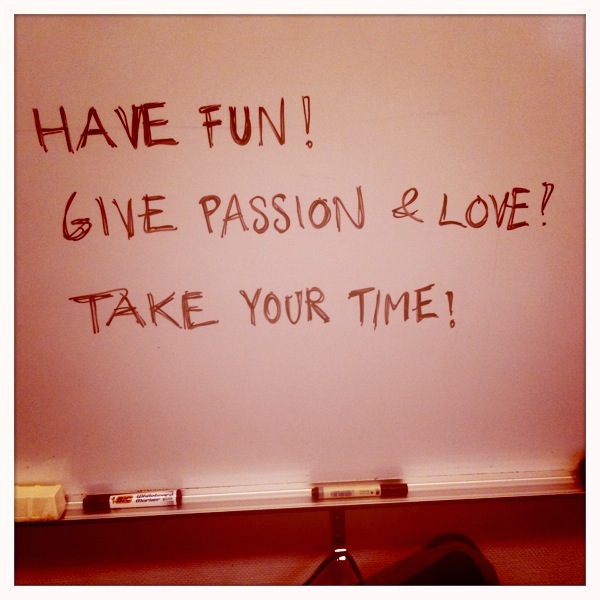 HAVE FUN!
GIVE PASSION & LOVE!
TAKE YOUR TIME!
BIC Whiteboard
Marker